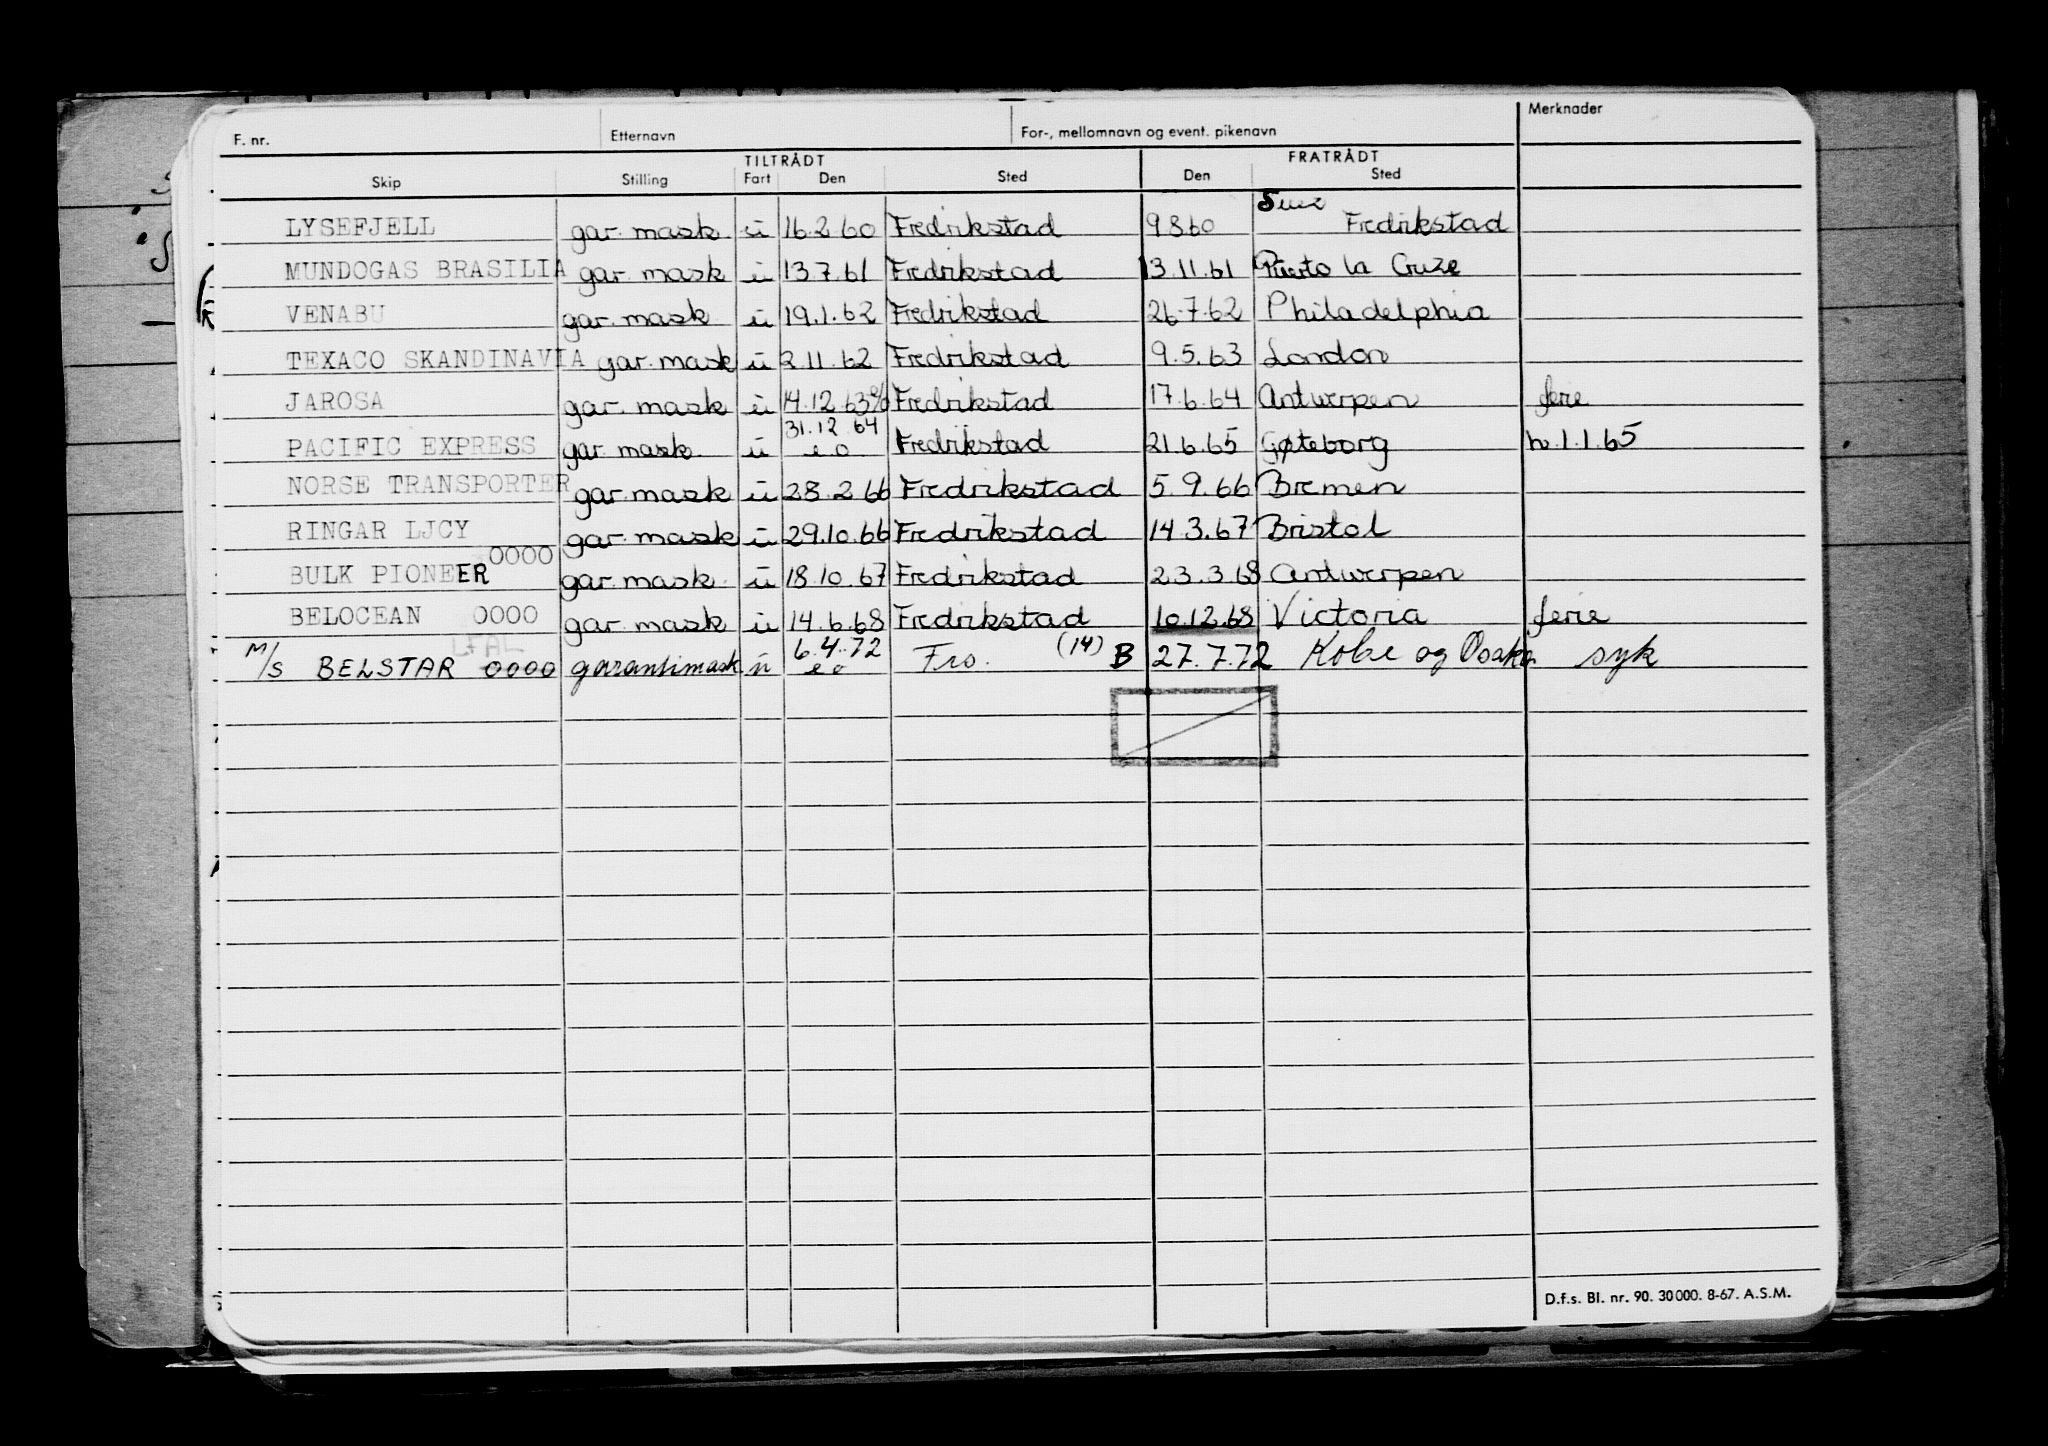 F. nr. Etternavn For-, mellomnavn og event. pikenavn Merknader
TILTRÅDT FRATRÅDT
Skip Stilling Fart Den Sted Den Sted
Suez
LYSEFJELL gar. mask. u 16.2.60 Fredrikstad 9 8 60 Fredrikstad
MUNDOGAS BRASILIA gar. mask u 13.7.61 Fredrikstad 13.11.61 Puerto la Cruze
VENABU gar. mask u 19.1.62 Fredrikstad 26.7.62 Philadelphia
TEXACO SKANDINAVIA gar. mask u 2.11.62 Fredrikstad 9.5.63 London
JAROSA gar. mask u 14.12.63 Fredrikstad 17.6.64 Antwerpen ferie
31.12 64
PACIFIC EXPRESS gar. mask. u e o Fredrikstad 21.6.65 Gøteborg h. 1.1.65
NORSE TRANSPORTER gar. mask u 28.2.66 Fredrikstad 5.9.66 Bremen
RINGAR LJCY gar. mask u 29.10.66 Fredrikstad 14.3.67 Bristol
0000
BULK PIONEER gar. mask. u 18.10.67 Fredrikstad 23.3.68 Antwerpen
BELOCEAN 0000 gar. mask u 14.6.68 Fredrikstad 10.12.68 Victoria ferie
LFAL 6.4.72
M/S BELSTAR 0000 garantimask u e o Fro. (14) B 27.7.72 Kobe og Osaka syk
D.f.s. Bl. nr. 90. 30 000. 8-67. A.S.M.